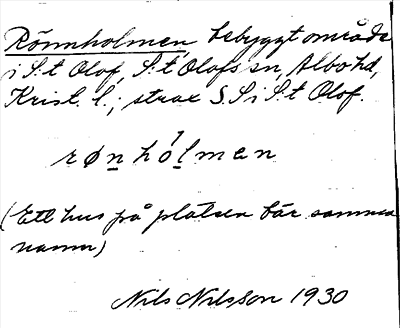 Rönnholmen, bebyggt område
i S:t Olof, S:t Olofs sn, Albo hd,
Krist. l.; strax S. S i S:t Olof.
rønhólmen
(Ett hus på platsen bär samma
namn)
Nils Nilsson 1930